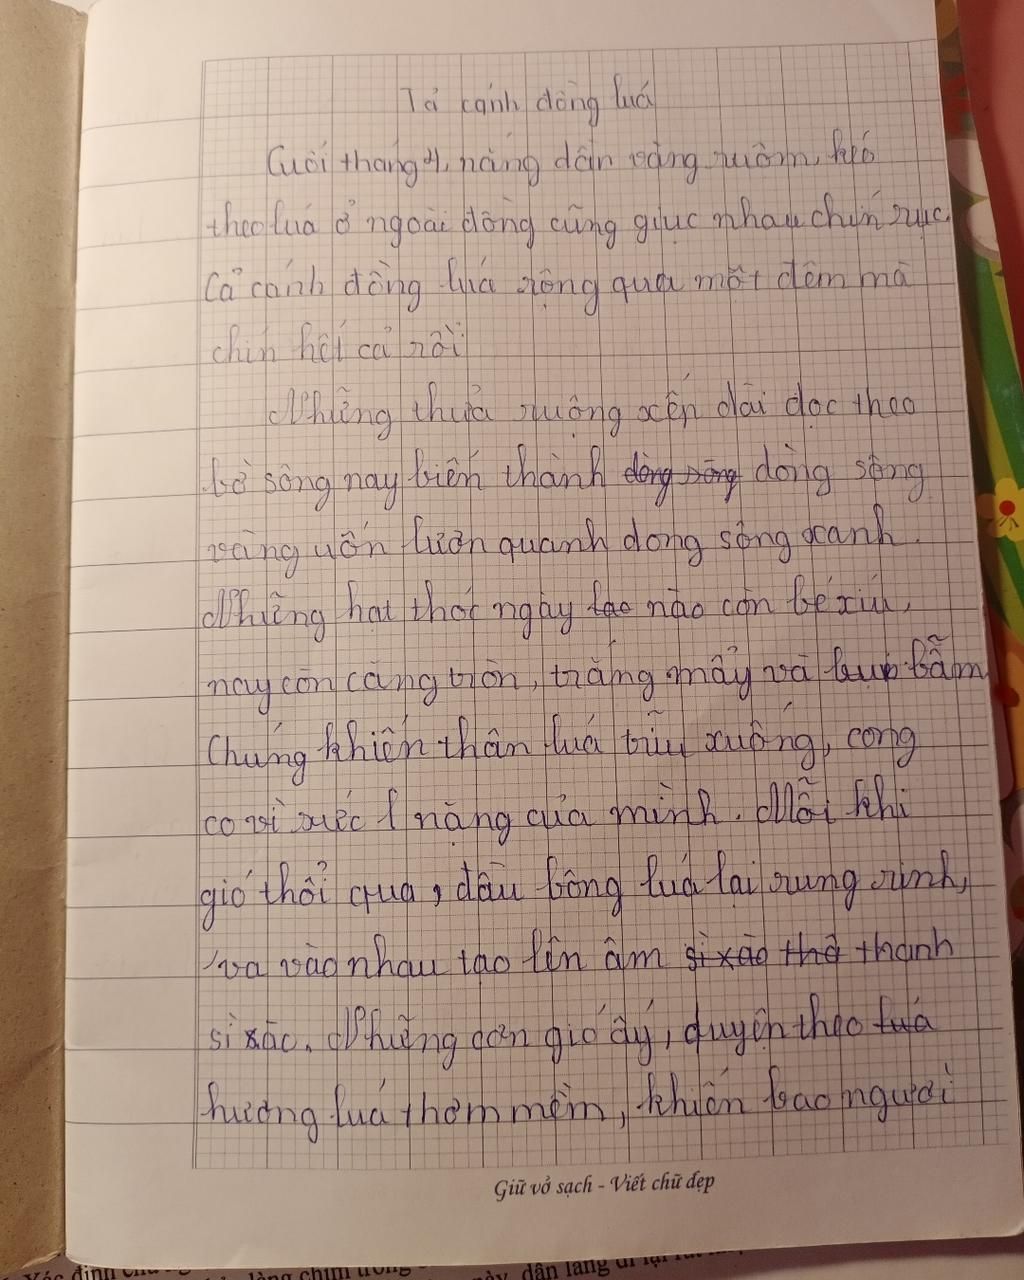 Tả cánh đồng luá
Cuối tháng 4, nắng dần vàng ruộm, kéo
theo luá ở ngoài đồng cũng giục nhau chín rực
Cả cánh đồng luá rộng qua một đêm mà
chín hết cả rồi
Những thửa ruộng xếp dài dọc theo
bờ sông nay biến thành dòng sông dòng sông
vàng uốn lượn quanh dòng sông xanh.
Những hạt thóc ngày tao nào còn bé xíu,
nay còn căng tròn, trắng mẩy và bụp bẫm
Chúng khiến thân luá trĩu xuống, cong
co vì sức nặng của mình. Mỗi khi
gió thổi qua, đầu bông luá lại rung rinh,
va vào nhau tạo lên âm sì xào thà thanh
sì xắc. Những cơn gió ấy, quyện theo luá
hương luá thơm mềm, khiến bao người
Giữ vở sạch - Viết chữ đẹp